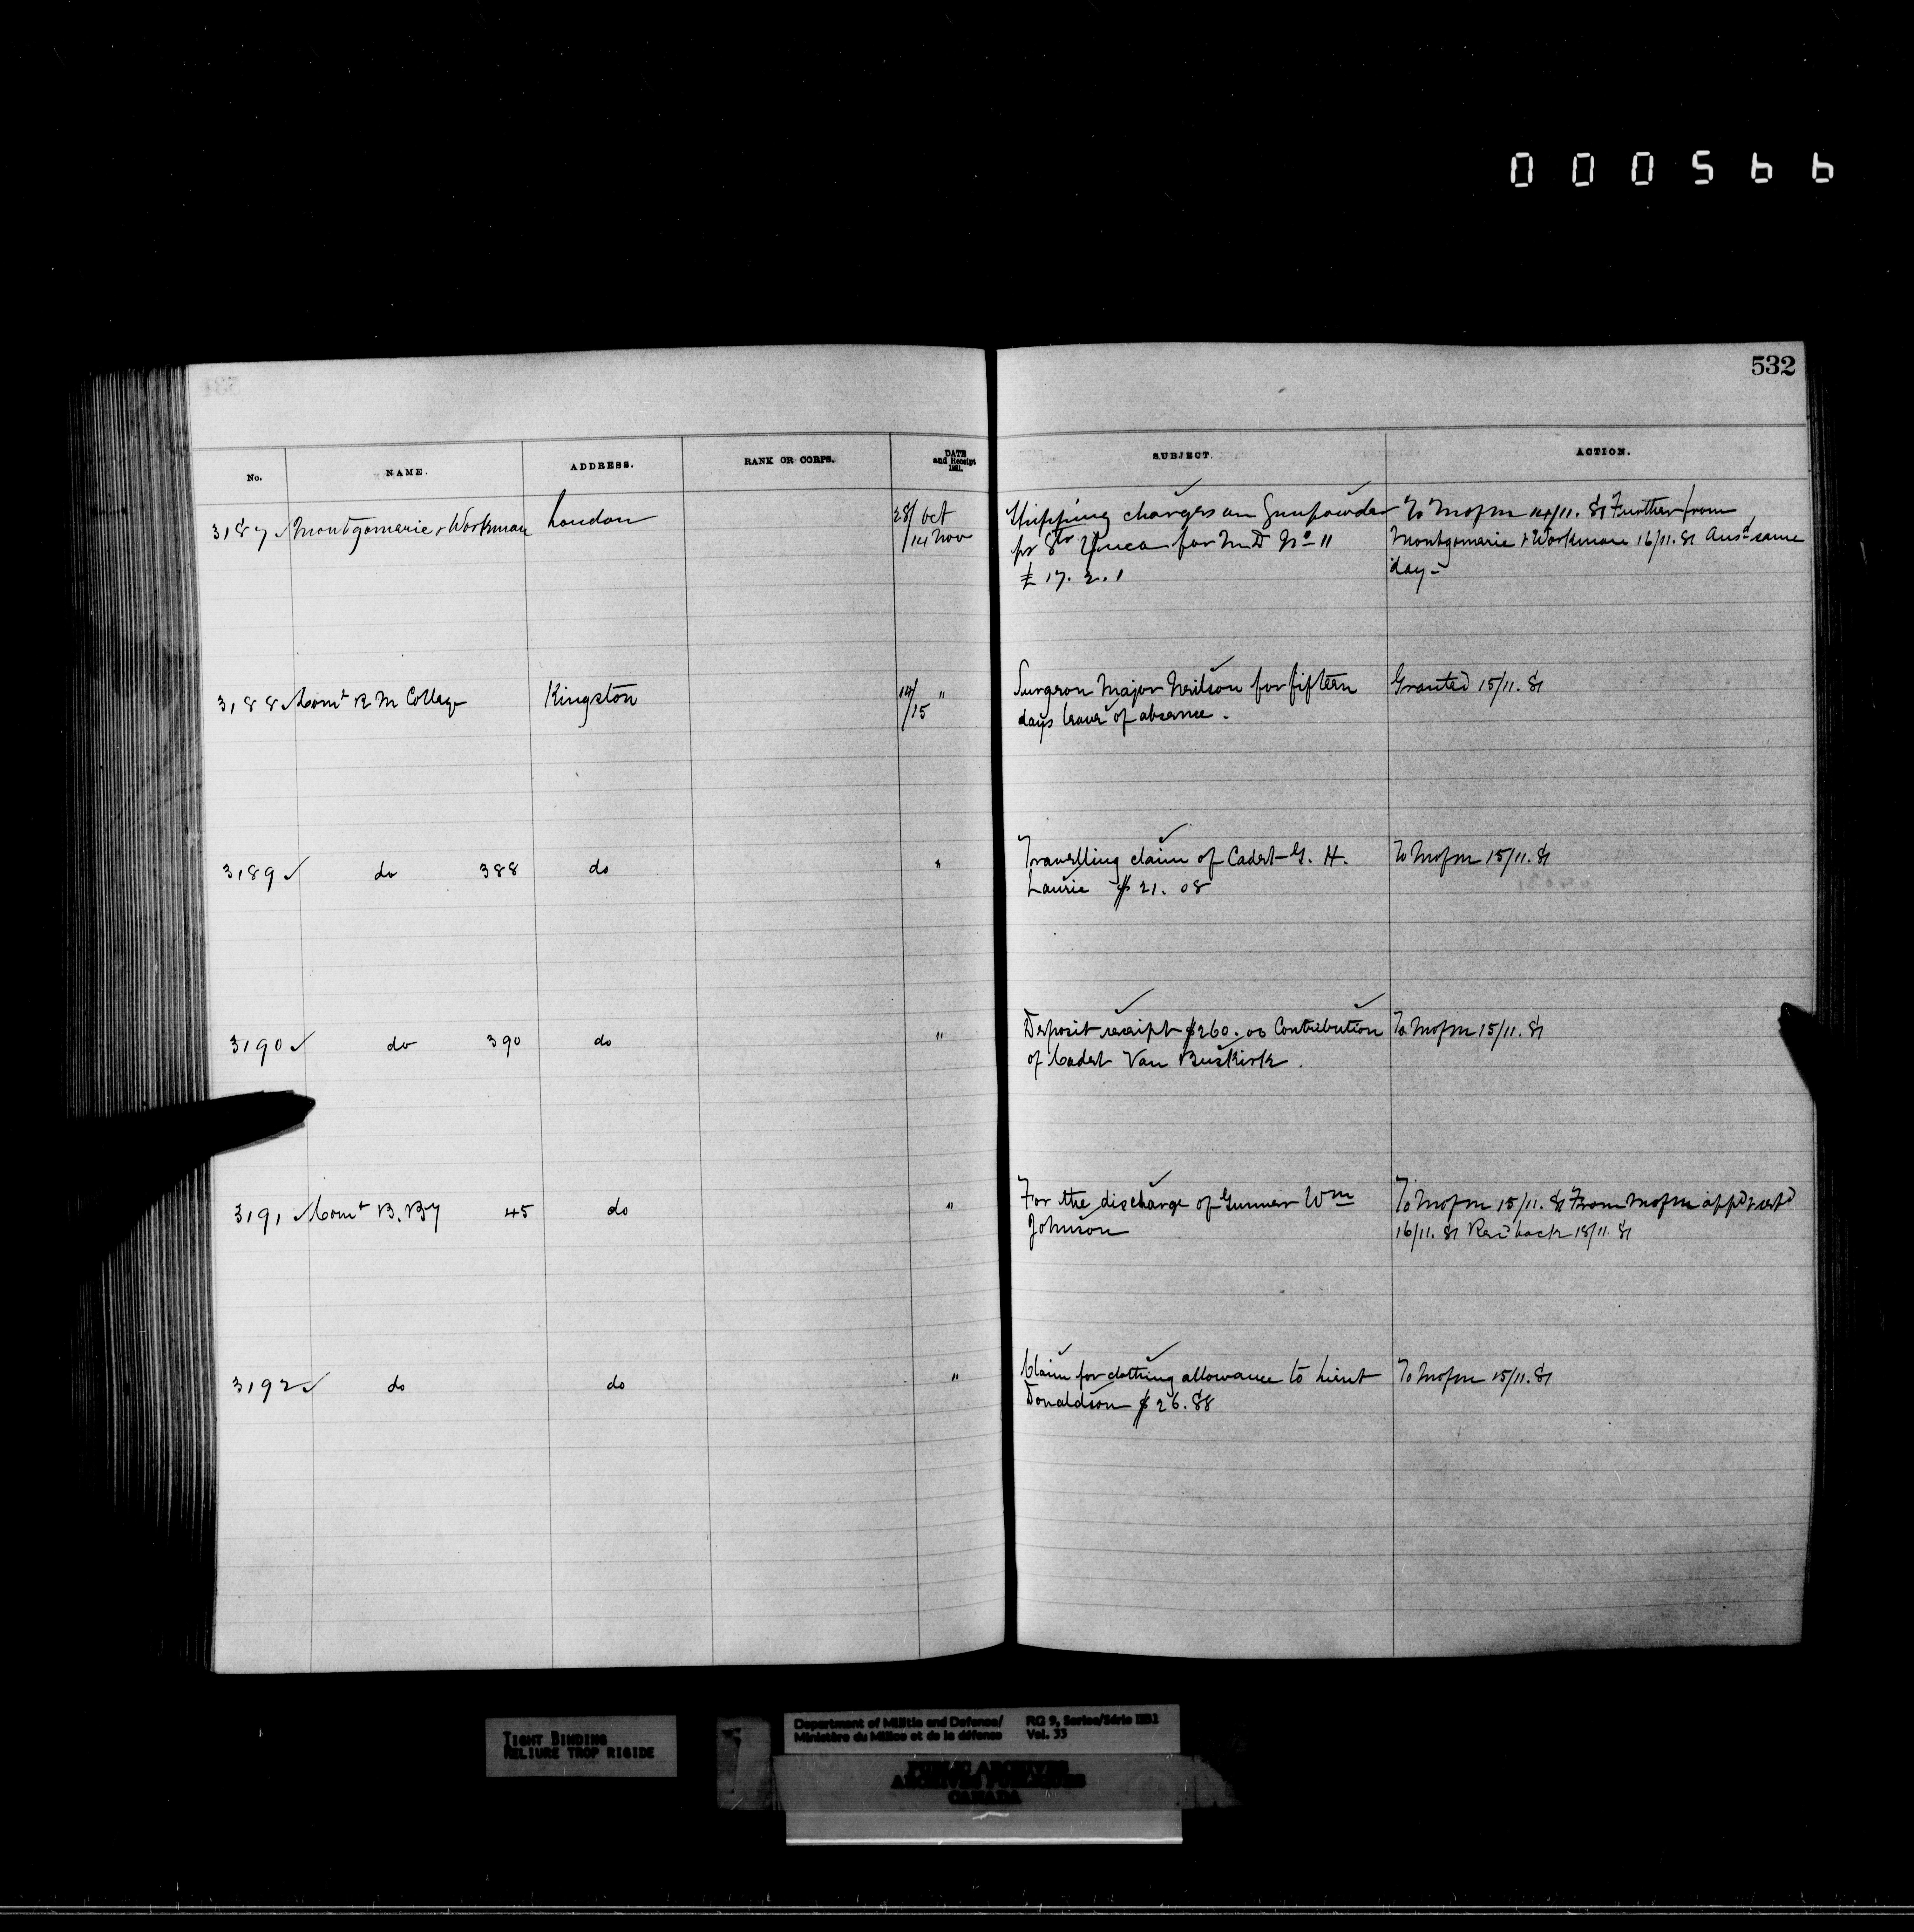 000566
532
No. NAME. ADDRESS. RANK OR CORPS. DATE and Receipt 1881. SUBJECT. ACTION.
3187 ✓ Montgomerie & Workman London 28/ Oct Shipping charges on Gunpowder To MofM 14/11.81 Further from
/14 Nov pr Str for M D No 11 Montgomerie & Workman 16/11.81 Ansd same
£ 17. 2. 1 day -
3188 ✓ Comt R M College Kingston 14/ " Surgeon Major Neilson for fifteen Granted 15/11.81
/15 days leave of absence.
3189 ✓ do 388 do " Travelling claim of Cadet G. H. To MofM 15/11.81
Laurie $ 21. 08
3190 ✓ do 390 do " Deposit receipt $260.00 Contribution To MofM 15/11.81
of Cadet Van Buskirk.
3191 ✓ Comt B. By 45 do " For the discharge of Gunner Wm To MofM 15/11.81 From MofM appd
Johnson 16/11.81 Recd back 18/11.81
3192 ✓ do do " Claim for clothing allowance to Lieut To MofM 15/11.81
Donaldson $ 26.88
TIGHT BINDING
RELIURE TROP RIGIDE
Department of Militia and Defence/ RG 9, Series/Série IIB1
Ministère du Milice et de la défense Vol. 33
PUBLIC ARCHIVES
ARCHIVES PUBLIQUES
CANADA